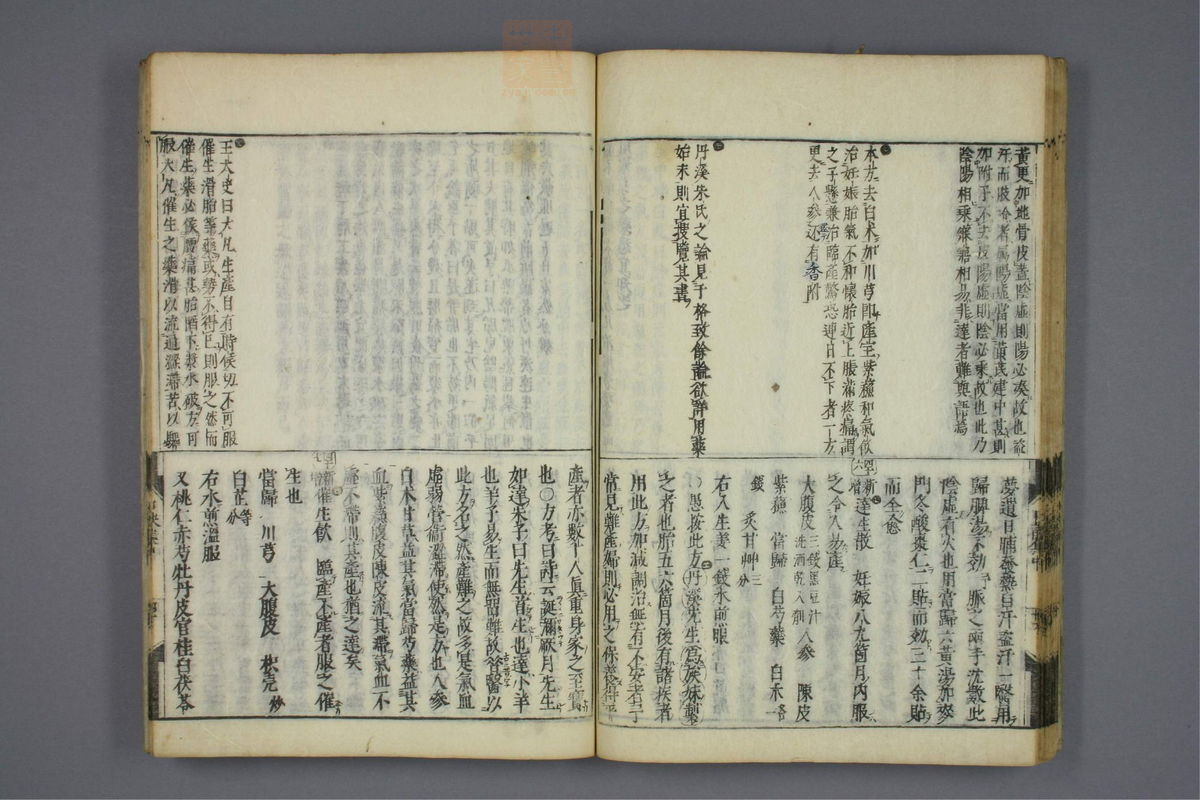 黃更加地骨皮蓋陰虛則陽必湊故也盜
汗而肢冷者屬陽虛當用黃芪建中甚則
加附子不去皮陽虛則陰必乘故也此乃
陰陽相乘發泄相易非達者難與語焉
本方去白朮加川芎即產宝紫蘓和氣飲
治妊娠胎氣不和懷胎近上脹滿疼痛謂
之子懸兼治臨產驚恐連日不下者一方
更去人參还有香附
丹溪朱氏之論見于格致餘論欲詳用藥
始末則宜搜覽其書
夢遺日晡發熱自汗盜汗一醫用
歸脾湯不効予脈之兩手沈數此
陰虛有火也用當歸六黃湯加麥
門冬酸棗仁一貼而効三十余貼
而全愈
新增達生散 妊娠八九箇月內服
之令人易產
大腹皮三錢黑豆汁洗酒乾入剉 人參 陳皮
紫蘓 當歸 白芍藥 白朮各一
錢 炙甘艸三分
右入生姜一錢水煎服
愚按此方丹溪先生為族妹製
之者也所五六箇月後有諸疾者
用此方加減調治無有不安者予
嘗見難產婦則必用之保養得平
王大史曰大凡生產自有時候切不可服
催生滑胎等藥或勢不得已則服之然而
催生藥必候腰痛甚胎陷下漿水破方可
服大凡催生之藥滑以流通澁滯苦以驅
產者亦數十人真重身家之至寶
也〇方考曰詩云誕彌厥月先生
如達朱子曰先生首生也達小羊
也羊子易生而無留難故昔醫以
此方名之然產難之故多是氣血
虛弱營衛澀滯使然是方也人參
白朮甘草益其氣當歸芍藥益其
血紫蘓腹皮陳皮流其滯氣血不
虛不滯則其產也猶之達矣
新增催生飲 臨產不產者服之催
生也
當歸 川芎 大腹皮 枳壳炒
白芷等分
右水煎溫服
又桃仁赤芍牡丹皮官桂白茯苓